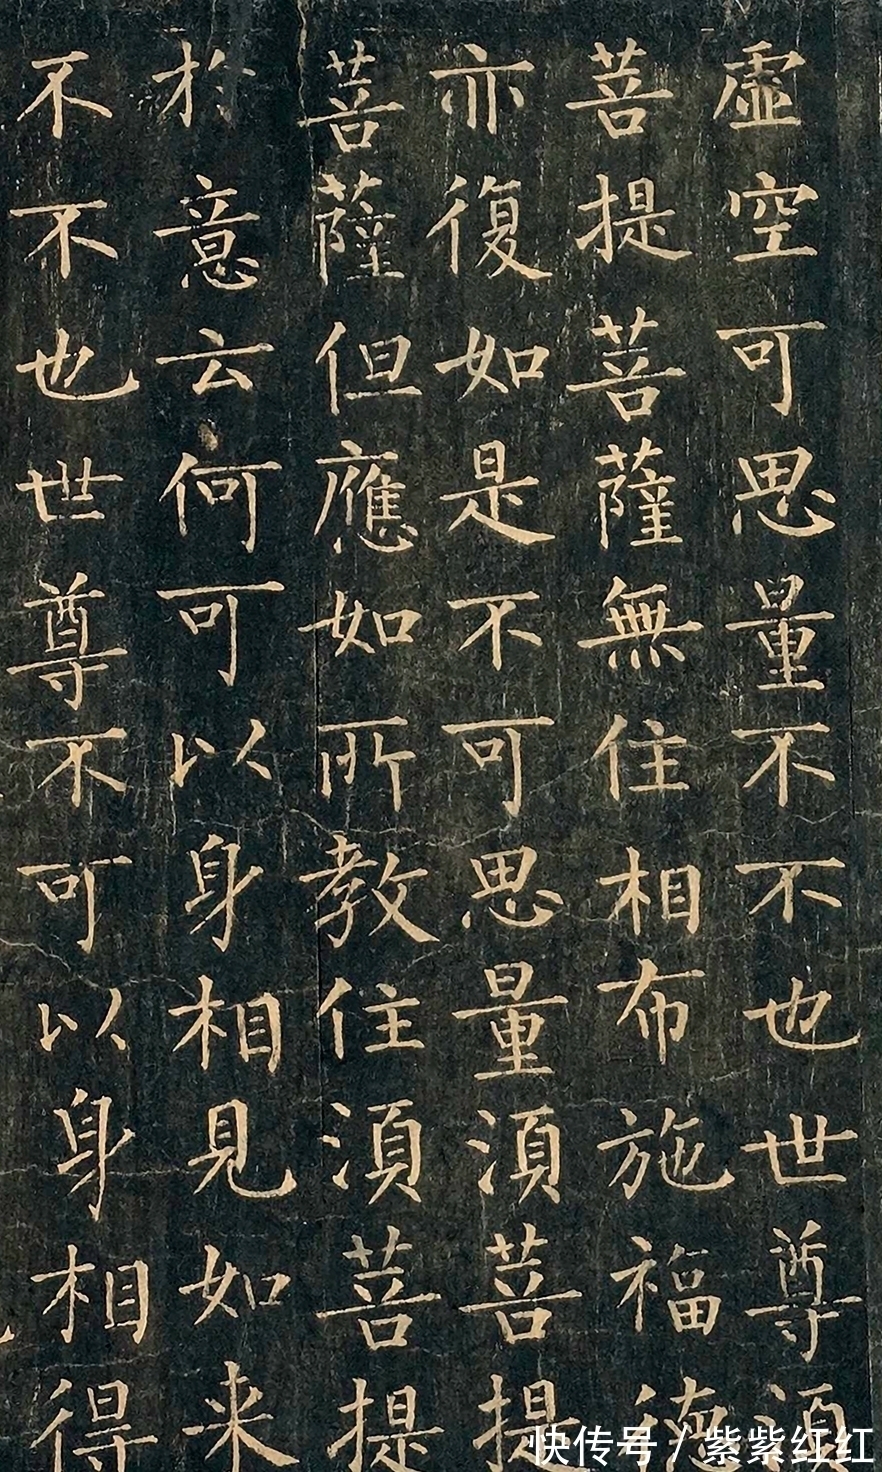 虛空可思量不不也世尊須
菩提菩薩無住相布施福德
亦復如是不可思量須菩提
菩薩但應如所教住須菩提
於意云何可以身相見如来
不不也世尊不可以身相得
快传号/紫紫红红